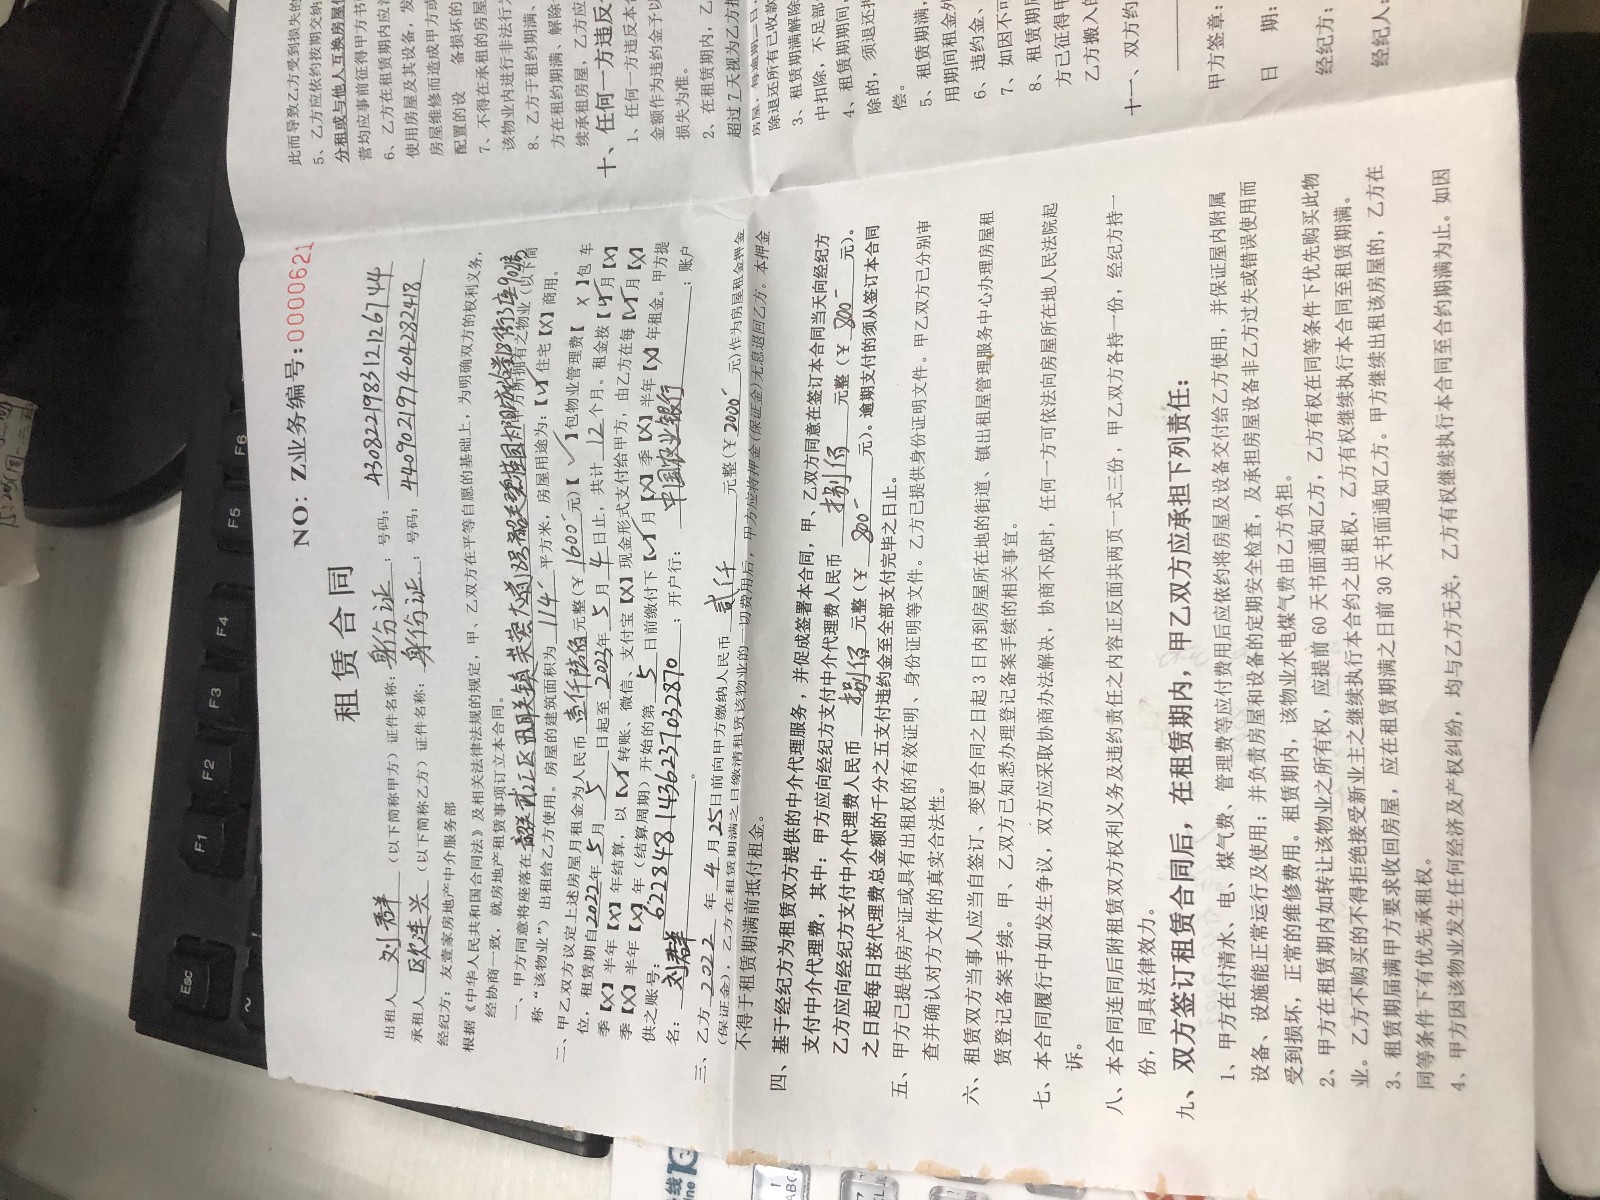 NO: Z业务编号:0000621
租赁合同
出租人 刘群 (以下简称甲方) 证件名称: 身份证 ; 号码: 430822198312126744
承租人 欧连兴 (以下简称乙方) 证件名称: 身份证 ; 号码: 440902197404282418
经纪方: 友壹家房地产中介服务部
根据《中华人民共和国合同法》及相关法律法规的规定, 甲、乙双方在平等自愿的基础上, 为明确双方的权利义务,
经协商一致, 就房地产租赁事项订立本合同。
一、甲方同意将座落在 韶关 甲方所拥有之物业 (以下简
称“该物业”) 出租给乙方使用。房屋的建筑面积为 114 平方米, 房屋用途为: 【√】住宅【X】商用。
二、甲乙双方议定上述房屋月租金为人民币 壹仟陆佰 元整(¥ 1600 元)【√】包物业管理费【X】包车
位, 租赁期自2022年 5 月 5 日起至 2023年 5 月 4 日止, 共计 12 个月。租金按【√】月【X】
季【X】半年【X】年结算, 以【√】转账、微信、支付宝【X】现金形式支付给甲方, 由乙方在每【√】月【X】
季【X】半年【X】年 (结算周期) 开始的第 5 日前缴付下【√】月【X】季【X】半年【X】年租金。甲方提
供之账号: 6228481436237032870 ; 开户行: 中国农业银行 ; 账户
名: 刘群 。
三、乙方 2022 年 4 月 25日前向甲方缴纳人民币 贰仟 元整(¥ 2000 元)作为房屋租金押金
(保证金), 乙方在租赁期满之日缴清租赁该物业的一切费用后, 甲方应将押金(保证金)无息退回乙方。本押金
不得于租赁期满前抵付租金。
四、基于经纪方为租赁双方提供的中介代理服务, 并促成签署本合同, 甲、乙双方同意在签订本合同当天向经纪方
支付中介代理费, 其中: 甲方应向经纪方支付中介代理费人民币 捌佰 元整 (¥ 800 元)。
乙方应向经纪方支付中介代理费人民币 捌佰 元整 (¥ 800 元)。逾期支付的须从签订本合同
之日起每日按代理费总金额的千分之五支付违约金至全部支付完毕之日止。
五、甲方已提供房产证或具有出租权的有效证明、身份证明等文件。乙方已提供身份证明文件。甲乙双方已分别审
查并确认对方文件的真实合法性。
六、租赁双方当事人应当自签订、变更合同之日起 3 日内到房屋所在地的街道、镇出租屋管理服务中心办理房屋租
赁登记备案手续。甲、乙双方已知悉办理登记备案手续的相关事宜。
七、本合同履行中如发生争议, 双方应采取协商办法解决, 协商不成时, 任何一方可依法向房屋所在地人民法院起
诉。
八、本合同连同后附租赁双方权利义务及违约责任之内容正反面共两页一式三份, 甲乙双方各持一份, 经纪方持一
份, 同具法律效力。
九、双方签订租赁合同后, 在租赁期内, 甲乙双方应承担下列责任:
1、甲方在付清水、电、煤气费、管理费等应付费用后应依约将房屋及设备交付给乙方使用, 并保证屋内附属
设备、设施能正常运行及使用; 并负责房屋和设备的定期安全检查, 及承担房屋设备非乙方过失或错误使用而
受到损坏, 正常的维修费用。租赁期内, 该物业水电煤气费由乙方负担。
2、甲方在租赁期内如转让该物业之所有权, 应提前 60 天书面通知乙方, 乙方有权在同等条件下优先购买此物
业。乙方不购买的不得拒绝接受新业主之继续执行本合约之出租权, 乙方有权继续执行本合同至租赁期满。
3、租赁期届满甲方要求收回房屋, 应在租赁期满之日前 30 天书面通知乙方。甲方继续出租该房屋的, 乙方在
同等条件下有优先承租权。
4、甲方因该物业发生任何经济及产权纠纷, 均与乙方无关, 乙方有权继续执行本合同至合约期满为止。如因
此而导致乙方受到损失的
5、乙方应依约按期交纳
分租或与他人互换房屋使
营均应事前征得甲方书
6、乙方在租赁期内应
使用房屋及其设备, 发
房屋维修而造成甲方或
配置的设备损坏的
7、不得在承租的房屋
该物业内进行非法行
8、乙方于租约期满、
方在租约期满、解除
续承租房屋, 乙方应
十、任何一方违反
1、任何一方违反本
金额作为违约金予以
损失为准。
2、在租赁期内, 乙
超过 7 天视为乙方
除退还所有已收款
3、租赁期满解除
中扣除, 不足部
4、租赁期期间,
除的, 须退还
偿。
5、租赁期满,
用期间租金外
6、违约金、
7、如因不可
8、租赁期
方已征得甲
乙方搬入
十一、双方约
甲方签章:
日 期:
经纪方:
经纪人:
Esc
F1
F2
F3
F4
F5
F6